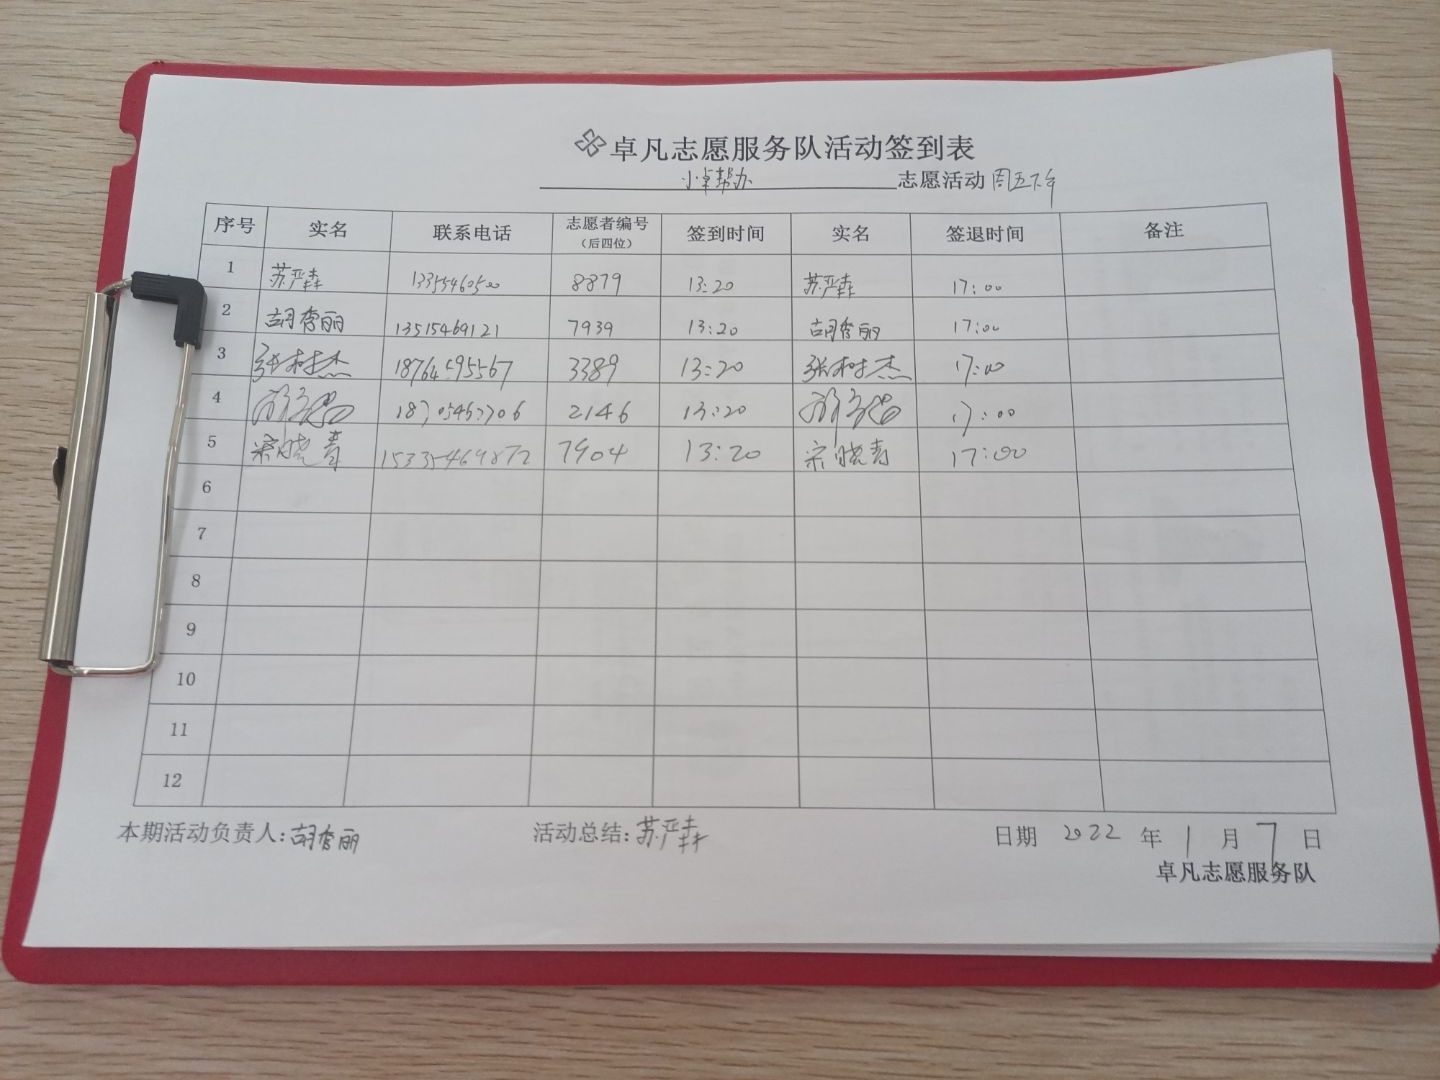 卓凡志愿服务队活动签到表
小卓帮办 志愿活动 周五下午
序号 实名 联系电话 志愿者编号(后四位) 签到时间 实名 签退时间 备注
1 苏严犇 13355460500 8879 13:20 苏严犇 17:00
2 胡秀丽 13515469121 7939 13:20 胡秀丽 17:00
3 张树杰 18764595567 3389 13:20 张树杰 17:00
4 2146 13:20 17:00
5 宋晓青 15335469872 7904 13:20 宋晓青 17:00
6
7
8
9
10
11
12
本期活动负责人:胡秀丽 活动总结:苏严犇 日期 2022 年 1 月 7 日
卓凡志愿服务队